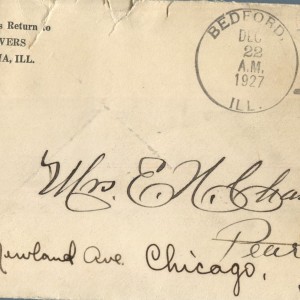 s Return to
VERS
IA, ILL.
BEDFORD,
DEC
22
A.M.
1927
ILL.
Mrs. E. N. Chas
Pear
Newland Ave Chicago,